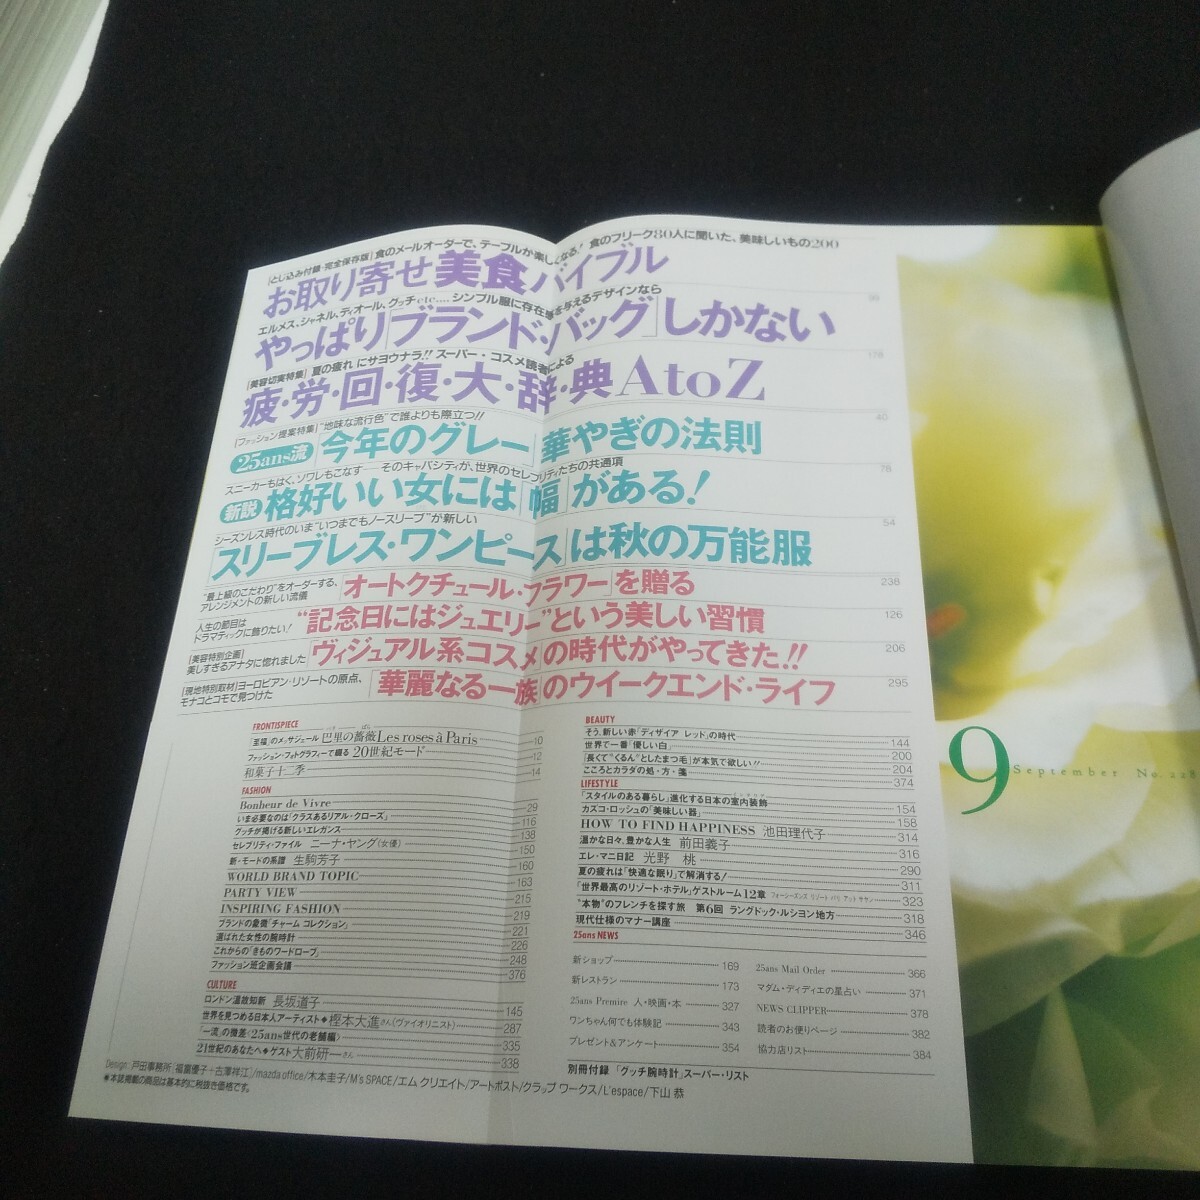 [とじ込み付録・完全保存版] 食のメールオーダーで、テーブルが楽しくなる! 食のフリーク80人に聞いた、美味しいもの200
お取り寄せ美食バイブル
エルメス、シャネル、ディオール、グッチetc.… シンプル服に存在感を与えるデザインなら
やっぱり「ブランド・バッグ」しかない
178
[美容切実特集] 夏の疲れにサヨウナラ!! スーパー・コスメ読者による
疲・労・回・復・大・辞・典 A to Z
40
[ファッション提案特集] "地味な流行色"で誰よりも際立つ!!
25ans流 「今年のグレー」華やぎの法則
78
スニーカーもはく、ソワレもこなす── そのキャパシティが、世界のセレブリティたちの共通項
新説 格好いい女には「幅」がある!
54
シーズンレス時代のいま"いつまでもノースリーブ"が新しい
「スリーブレス・ワンピース」は秋の万能服
238
"最上級のこだわり"をオーダーする、
アレンジメントの新しい流儀
「オートクチュール・フラワー」を贈る
126
人生の節目は
ドラマティックに飾りたい!
"記念日にはジュエリー"という美しい習慣
206
[美容特別企画]
美しすぎるアナタに惚れました
「ヴィジュアル系コスメ」の時代がやってきた!!
295
[現地特別取材]ヨーロピアン・リゾートの原点、
モナコとコモで見つけた
「華麗なる一族」のウイークエンド・ライフ
FRONTISPIECE
「至福」のメッサジュール 巴里の薔薇 Les roses à Paris 10
ファッション・フォトグラフィーで綴る 20世紀モード 12
和菓子十二季 14
FASHION
Bonheur de Vivre 29
いま必要なのは「クラスあるリアル・クローズ」 116
グッチが掲げる新しいエレガンス 138
セレブリティ・ファイル ニーナ・ヤング(女優) 150
新・モードの系譜 生駒芳子 160
WORLD BRAND TOPIC 163
PARTY VIEW 215
INSPIRING FASHION 219
ブランドの象徴「チャーム コレクション」 221
選ばれた女性の腕時計 226
これからの「きものワードローブ」 248
ファッション班企画会議 376
CULTURE
ロンドン温故知新 長坂道子 145
世界を見つめる日本人アーティスト◆樫本大進さん(ヴァイオリニスト) 287
「一流」の履歴〈25ans世代の老舗編〉 335
21世紀のあなたへ◆ゲスト 大前研一さん 338
BEAUTY
そう、新しい赤「ディザイア レッド」の時代 144
世界で一番「優しい白」 200
「長くて"くるん"としたまつ毛」が本気で欲しい!! 204
こころとカラダの処・方・箋 374
LIFESTYLE
「スタイルのある暮らし」進化する日本の室内装飾 154
カズコ・ロッシュの「美味しい器」 158
HOW TO FIND HAPPINESS 池田理代子 314
温かな日々、豊かな人生 前田義子 316
エレ・マニ日記 光野 桃 290
夏の疲れは「快適な眠り」で解消する! 311
「世界最高のリゾート・ホテル」ゲストルーム12章 フォーシーズンズ リゾート バリ アット サヤン 323
"本物"のフレンチを探す旅 第6回 ラングドック・ルシヨン地方 318
現代仕様のマナー講座 346
25ans NEWS
新ショップ 169
新レストラン 173
25ans Premire 人・映画・本 327
ワンちゃん何でも体験記 343
プレゼント&アンケート 354
25ans Mail Order 366
マダム・ディディエの星占い 371
NEWS CLIPPER 378
読者のお便りページ 382
協力店リスト 384
別冊付録 「グッチ腕時計」スーパー・リスト
Design:戸田事務所[福富優子+古澤祥江]/mazda office/木本圭子/M's SPACE/エム クリエイト/アートポスト/クラップ ワークス/L'espace/下山 恭
◆本誌掲載の商品は基本的に税抜き価格です。
9
September No.228